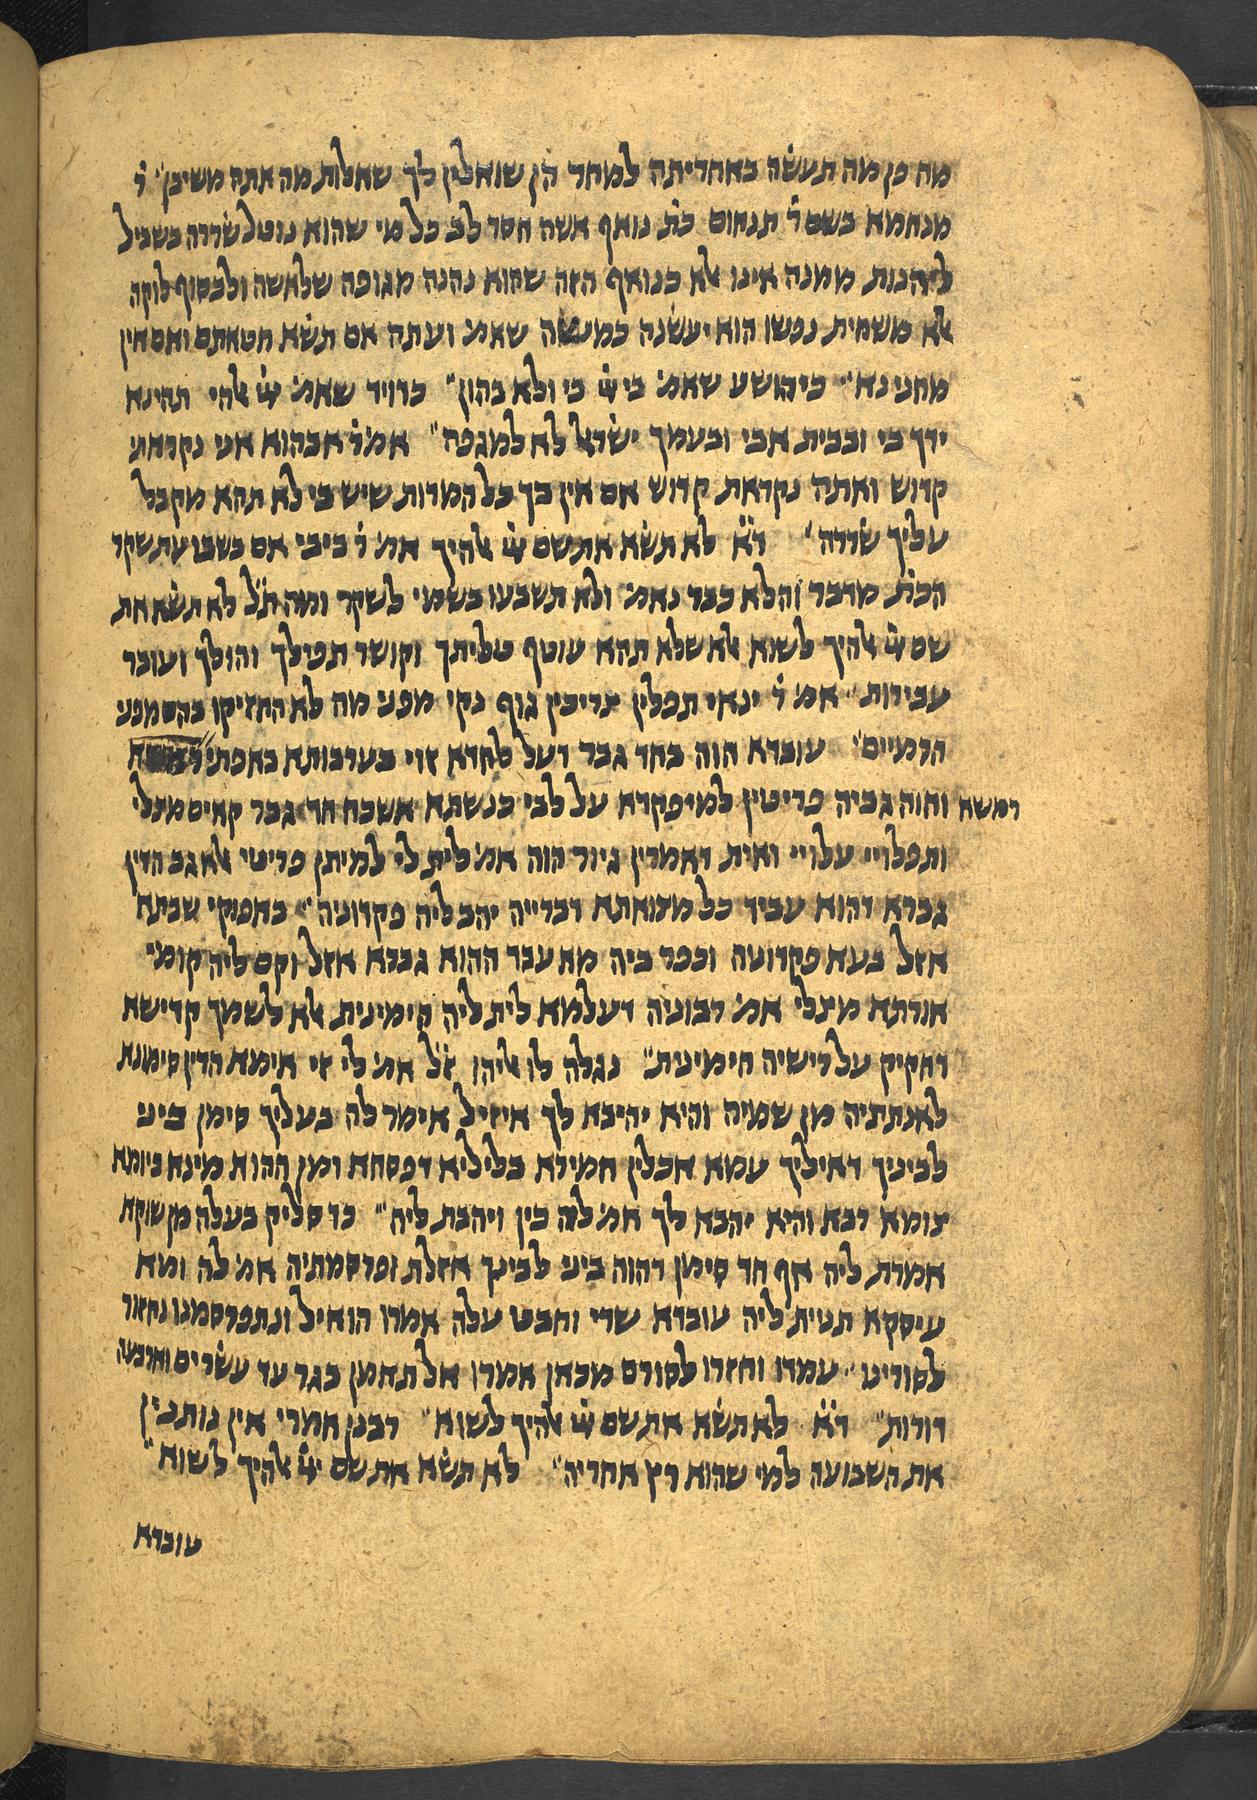 מה כן מה תעשה באחריתה למחר הן שואלין לך שאלות מה אתה משיבן ר׳
מנחמא בשם ר׳ תנחום כת׳ נואף אשה חסר לב כל מי שהוא נוטל שררה בשביל
ליהנות ממנה אינו אלא כנואף הזה שהוא נהנה מגופה שלאשה ולבסוף לוקה
אלא משחית נפשו הוא יעשנה כמעשה שאמ׳ ועתה אם תשא חטאתם ואם אין
מחני נא כיהושע שאמ׳ בי ייי בי ולא בהון כדויד שאמ׳ ייי אלהי תהי נא
ידך בי ובבית אבי ובעמך ישראל לא למגפה אמ׳ ר׳ אבהוא אני נקראתי
קדוש ואתה נקראת קדוש אם אין בך כל המדות שיש בי לא תהא מקבל
עליך שררה ד״א לא תשא את שם ייי אלהיך אמ׳ ר׳ ביבי אם בשבועת שקר
הכת׳ מדבר והלא כבר נאמ׳ ולא תשבעו בשמי לשקר ומה ת״ל לא תשא את
שם ייי אלהיך לשוא אלא שלא תהא עוטף טליתך וקושר תפילך והולך ועובר
עבירות אמ׳ ר׳ ינאי תפלין צריכין גוף נקי מפני מה לא החזיקו בהם מפני
הרמיים עובדא הוה בחד גבר דעל לחדא זוי בערבותא באפתי
רמשא והוה גביה פריטין למיפקדא על לבי כנשתא אשכח חד גבר קאים מצלי
ותפלויי עלויי ואית דאמרין גיור הוה אמ׳ לית לי למיתן פריטי אלא גב הדין
גברא דהוא עביד כל מצואתא דברייה יהב ליה פקדוניה באפוקי שבתא
אזל בעא פקדונה וכפר ביה מה עבד ההוא גברא אזל וקם ליה קומי
אורתא מצלי אמ׳ רבוניה דעלמא לית ליה הימינית אלא לשמך קדישא
דחקיק על רישיה הימינית נגלה לו אליהו ז״ל אמ׳ לי זי אימא הדין סימונא
לאנתתיה מן שמיה והיא יהיבא לך איזיל אימר לה בעליך סימן ביני
לביניך דאיליך עמא אכלין חמירא בליליא דפסחא ומן ההוא מינא ביומא
צומא רבא והיא יהבא לך אמ׳ לה כין ויהבת ליה כד סליק בעלה מן שוקא
אמרת ליה אף חד סימן דהוה ביני לבינך אזלת ופרסמתיה אמ׳ לה ומא
עיסקא תנית ליה עובדא שרי וחבט עלה אמרו הואיל ונתפרסמנו נחזור
לסורינו עמדו וחזרו לסורם מכאן אמרו אל תאמן בגר עד עשרים וארבעה
דורות ד״א לא תשא את שם ייי אלהיך לשוא רבנן אמרי אין נותנין
את השבועה למי שהוא רץ אחריה לא תשא את שם ייי אלהיך לשוא
עובדא